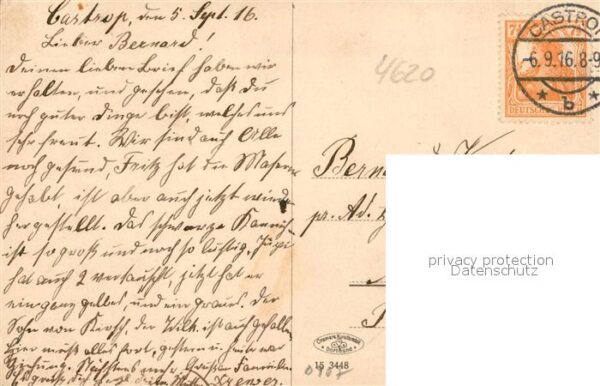 Castrop, den 5. Sept. 16.
Lieber Bernard!
Deinen lieben Brief haben wir
erhalten, und gesehen, daß du
noch guter Dinge bist, welches uns
sehr freut. Wir sind auch Alle
noch gesund, Fritz hat die Masern
gehabt, ist aber auch jetzt wieder
hergestellt. Das schwarze Kaninch
ist so groß und noch so lustig,
hat auch 2 vertauscht, jetzt hat er
ein ganz gelbes, und ein graues. Der
Sohn von Kersch, der Wilh. ist auch gefallen
Hier muß alles fort, gestern u heute war
Ziehung. Nächstens mehr. Grüße Familie
4620
CASTROP
6.9.16.8-9
* b *
7½
DEUTSCH
Bern
pr. Ad.
15 3448
privacy protection
Datenschutz